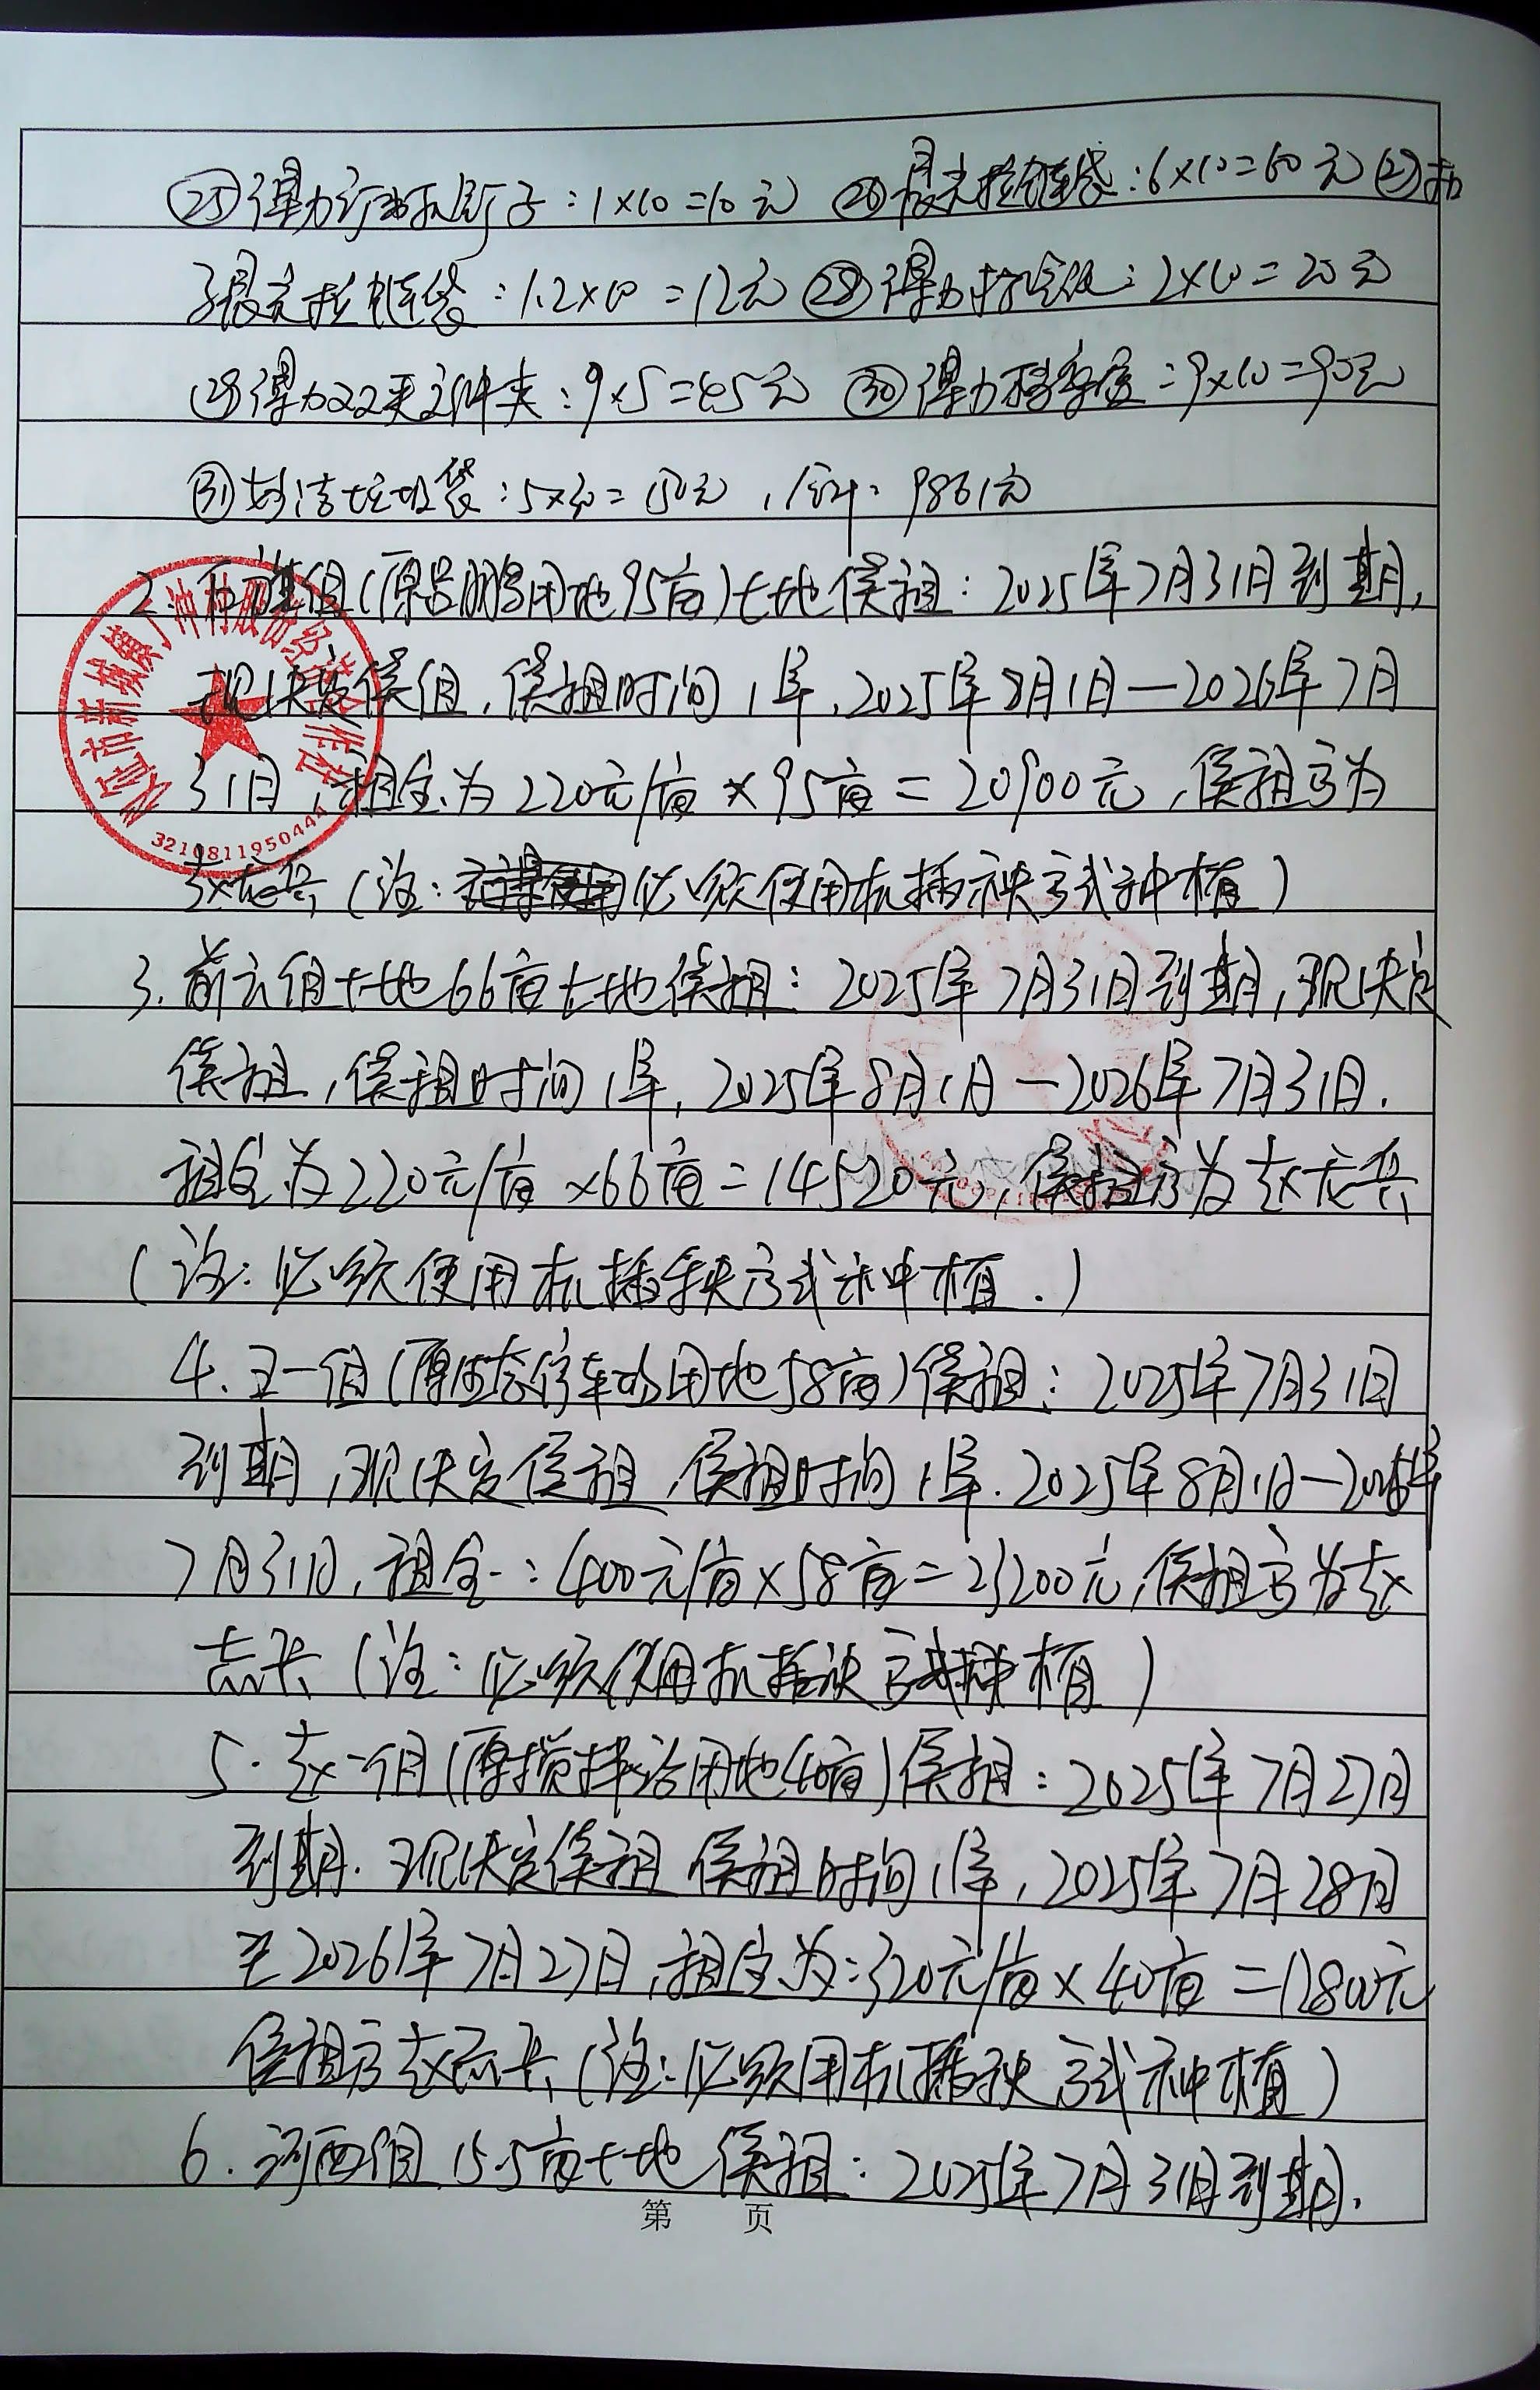 ㉕得力订书机钉子：1×10=10元 ㉖晨光拉链袋：6×10=60元 ㉗
晨光拉链袋：1.2×10=12元 ㉘得力 ：2×10=20元
㉙得力 文件夹：9×5=45元 ㉚得力档案盒：9×10=90元
㉛妙洁垃圾袋：5×30=150元，合计：9861元
2. 组(原吕鹏用地95亩)土地续租：2025年7月31日到期，
现决定续租，续租时间1年，2025年8月1日—2026年7月
31日，租金为220元/亩×95亩=20900元，续租方为
赵志兵(注：必须使用机插秧方式种植)
3.前云组土地66亩土地续租：2025年7月31日到期，现决定
续租，续租时间1年，2025年8月1日—2026年7月31日.
租金为220元/亩×66亩=14520元，续租方为赵志兵
(注：必须使用机插秧方式种植.)
4.王一组(原 停车场用地58亩)续租：2025年7月31日
到期，现决定续租，续租时间1年.2025年8月1日—2026年
7月31日，租金：400元/亩×58亩=23200元，续租方为赵
志兵(注：必须使用机插秧方式种植)
5.赵一组(原搅拌站用地40亩)续租：2025年7月27日
到期.现决定续租 续租时间1年，2025年7月28日
至2026年7月27日，租金为：320元/亩×40亩=12800元
续租方赵志兵(注：必须用机插秧方式种植)
6.河西组15.5亩土地续租：2025年7月31日到期.
第 页
仪征市新城镇丁冲村股份经济合作社
3210811950444